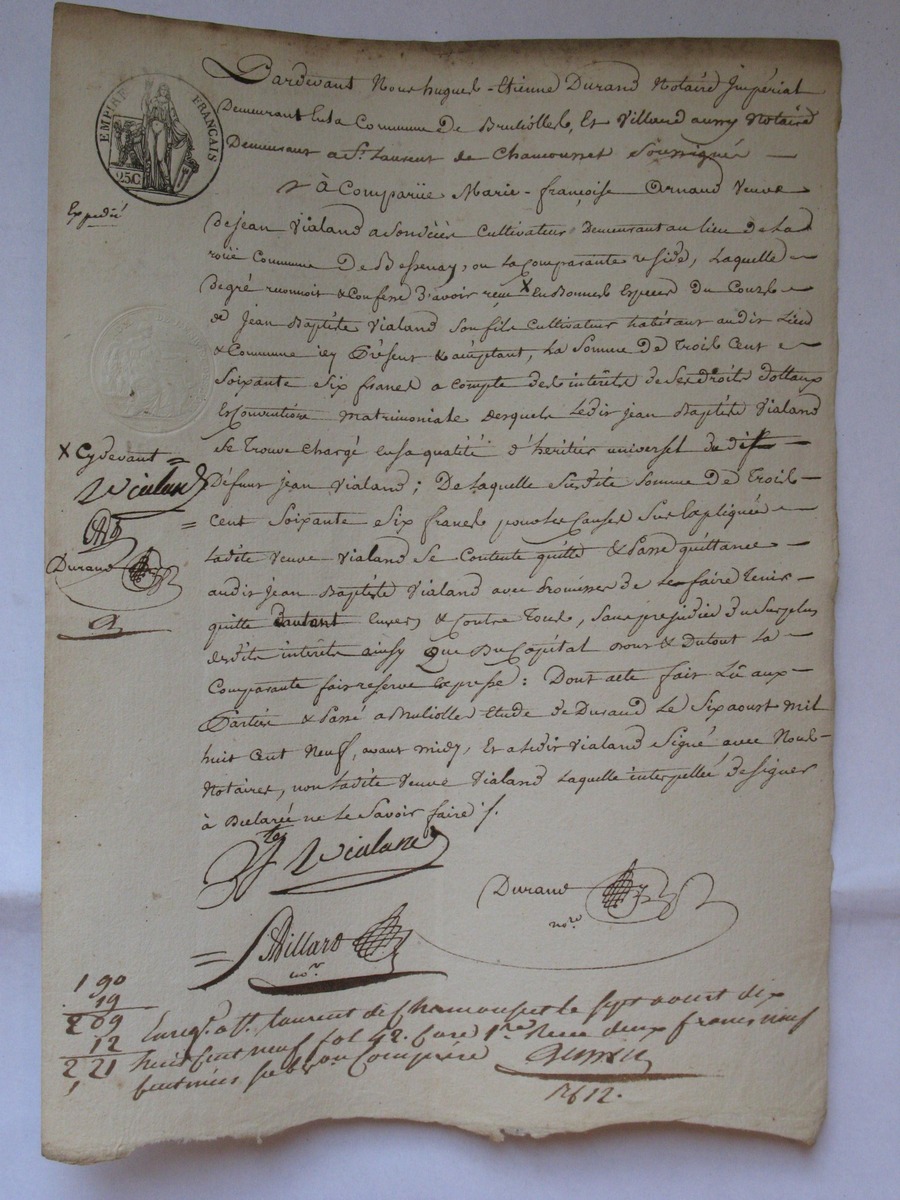 EMPIRE FRANÇAIS
25C
Pardevant Nous hugues-Etienne Durand Notaire Impérial
Demeurant En la Commune de Brullolles, Et Villard aussy Notaire
Demeurant a St. Laurent de Chamousset Soussignés —
à Comparüe Marie-françoise Arnaud Veuve
Expedié
De jean Vialand a Son décès Cultivateur Demeurant au lieu de La
roüe Commune De Bessenay, ou La Comparante reside, Laquelle —
Degré reconnoit & Confesse D'avoir reçu X En Bonnes Especes Du Cours —
de Jean Baptiste Vialand Son fils Cultivateur habitant audit Lieu
& Commune icy Présent & acceptant, La Somme De Trois Cent —
Soixante Six francs a Compte des intérêts de Ses Droits Dottaux
Et Conventions Matrimoniale desquels Ledit jean Baptiste Vialand
Se Trouve Chargé En Sa qualité d'héritier universel du dit
X Cydevant =
Défunt jean Vialand ; De Laquelle Susdite Somme De Trois
Vialand
Cent Soixante Six francs pour les Causes Sus Expliquée —
Durand
Ladite Veuve Vialand Se Contente quitte & Passe quittance —
audit jean Baptiste Vialand avec Promesse de Le faire Tenir
quitte d'autant Envers & Contre Tous, Sans prejudice du Surplus
desdits intérêts ainsy Que Du Capital dont & Dutout La —
Comparante fait reserve Expresse : Dont acte fait Lû aux
Parties & Passé a Brullolle Etude de Durand Le Six aoust mil
huit Cent Neuf, avant midy, Et a Ledit Vialand Signé avec Nous
Notaires, non Ladite Veuve Vialand Laquelle interpellée de signer
à Déclarée ne le Savoir faire /.
Vialand
Durand
nore
Villard
nor.
1 90
19
2 09
12
2 21
Enregt. a St. laurent de Chamousset le sept aoust dix
huit Cent neuf fol 42. Case 1re. Recu deux francs neuf
Centimes Subvon Comprise